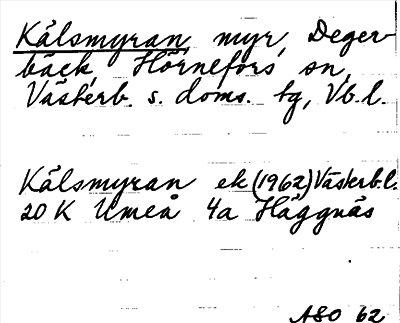 Kålsmyran, myr, Deger-
bäck, Hörnefors sn,
Västerb. s. doms. tg, Vb. l.
Kålsmyran ek (1962) Västerb. l.
20 K Umeå 4a Häggnäs
ASO 62